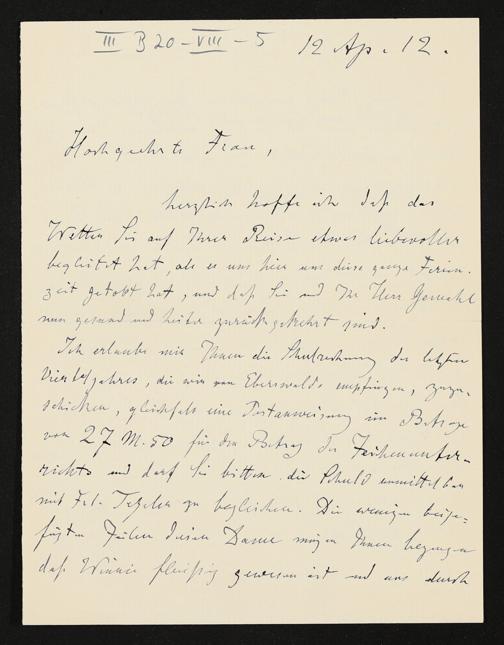 III B20-VIII-5 12 Ap. 12.
Hochgeehrte Frau,
herzlich hoffe ich daß das
Wetter Sie auf Ihrer Reise etwas liebevoller
begleitet hat, als es uns hier um diese ganze Ferien-
zeit getobt hat, und daß Sie und Ihr Herr Gemahl
nun gesund und heiter zurückgekehrt sind.
Ich erlaube mir Ihnen die Schulrechnung des letzten
Vierteljahres, die wir von Eberswalde empfingen, zuzu-
schicken, gleichfalls eine Postanweisung im Betrage
von 27 M. 50 für den Betrag des Zeichenunter-
richts und darf Sie bitten die Schuld unmittelbar
mit Frl. zu begleichen. Die wenigen beige-
fügten Zeilen dieser Dame mögen Ihnen bezeugen
daß Winnie fleißig gewesen ist und uns durch